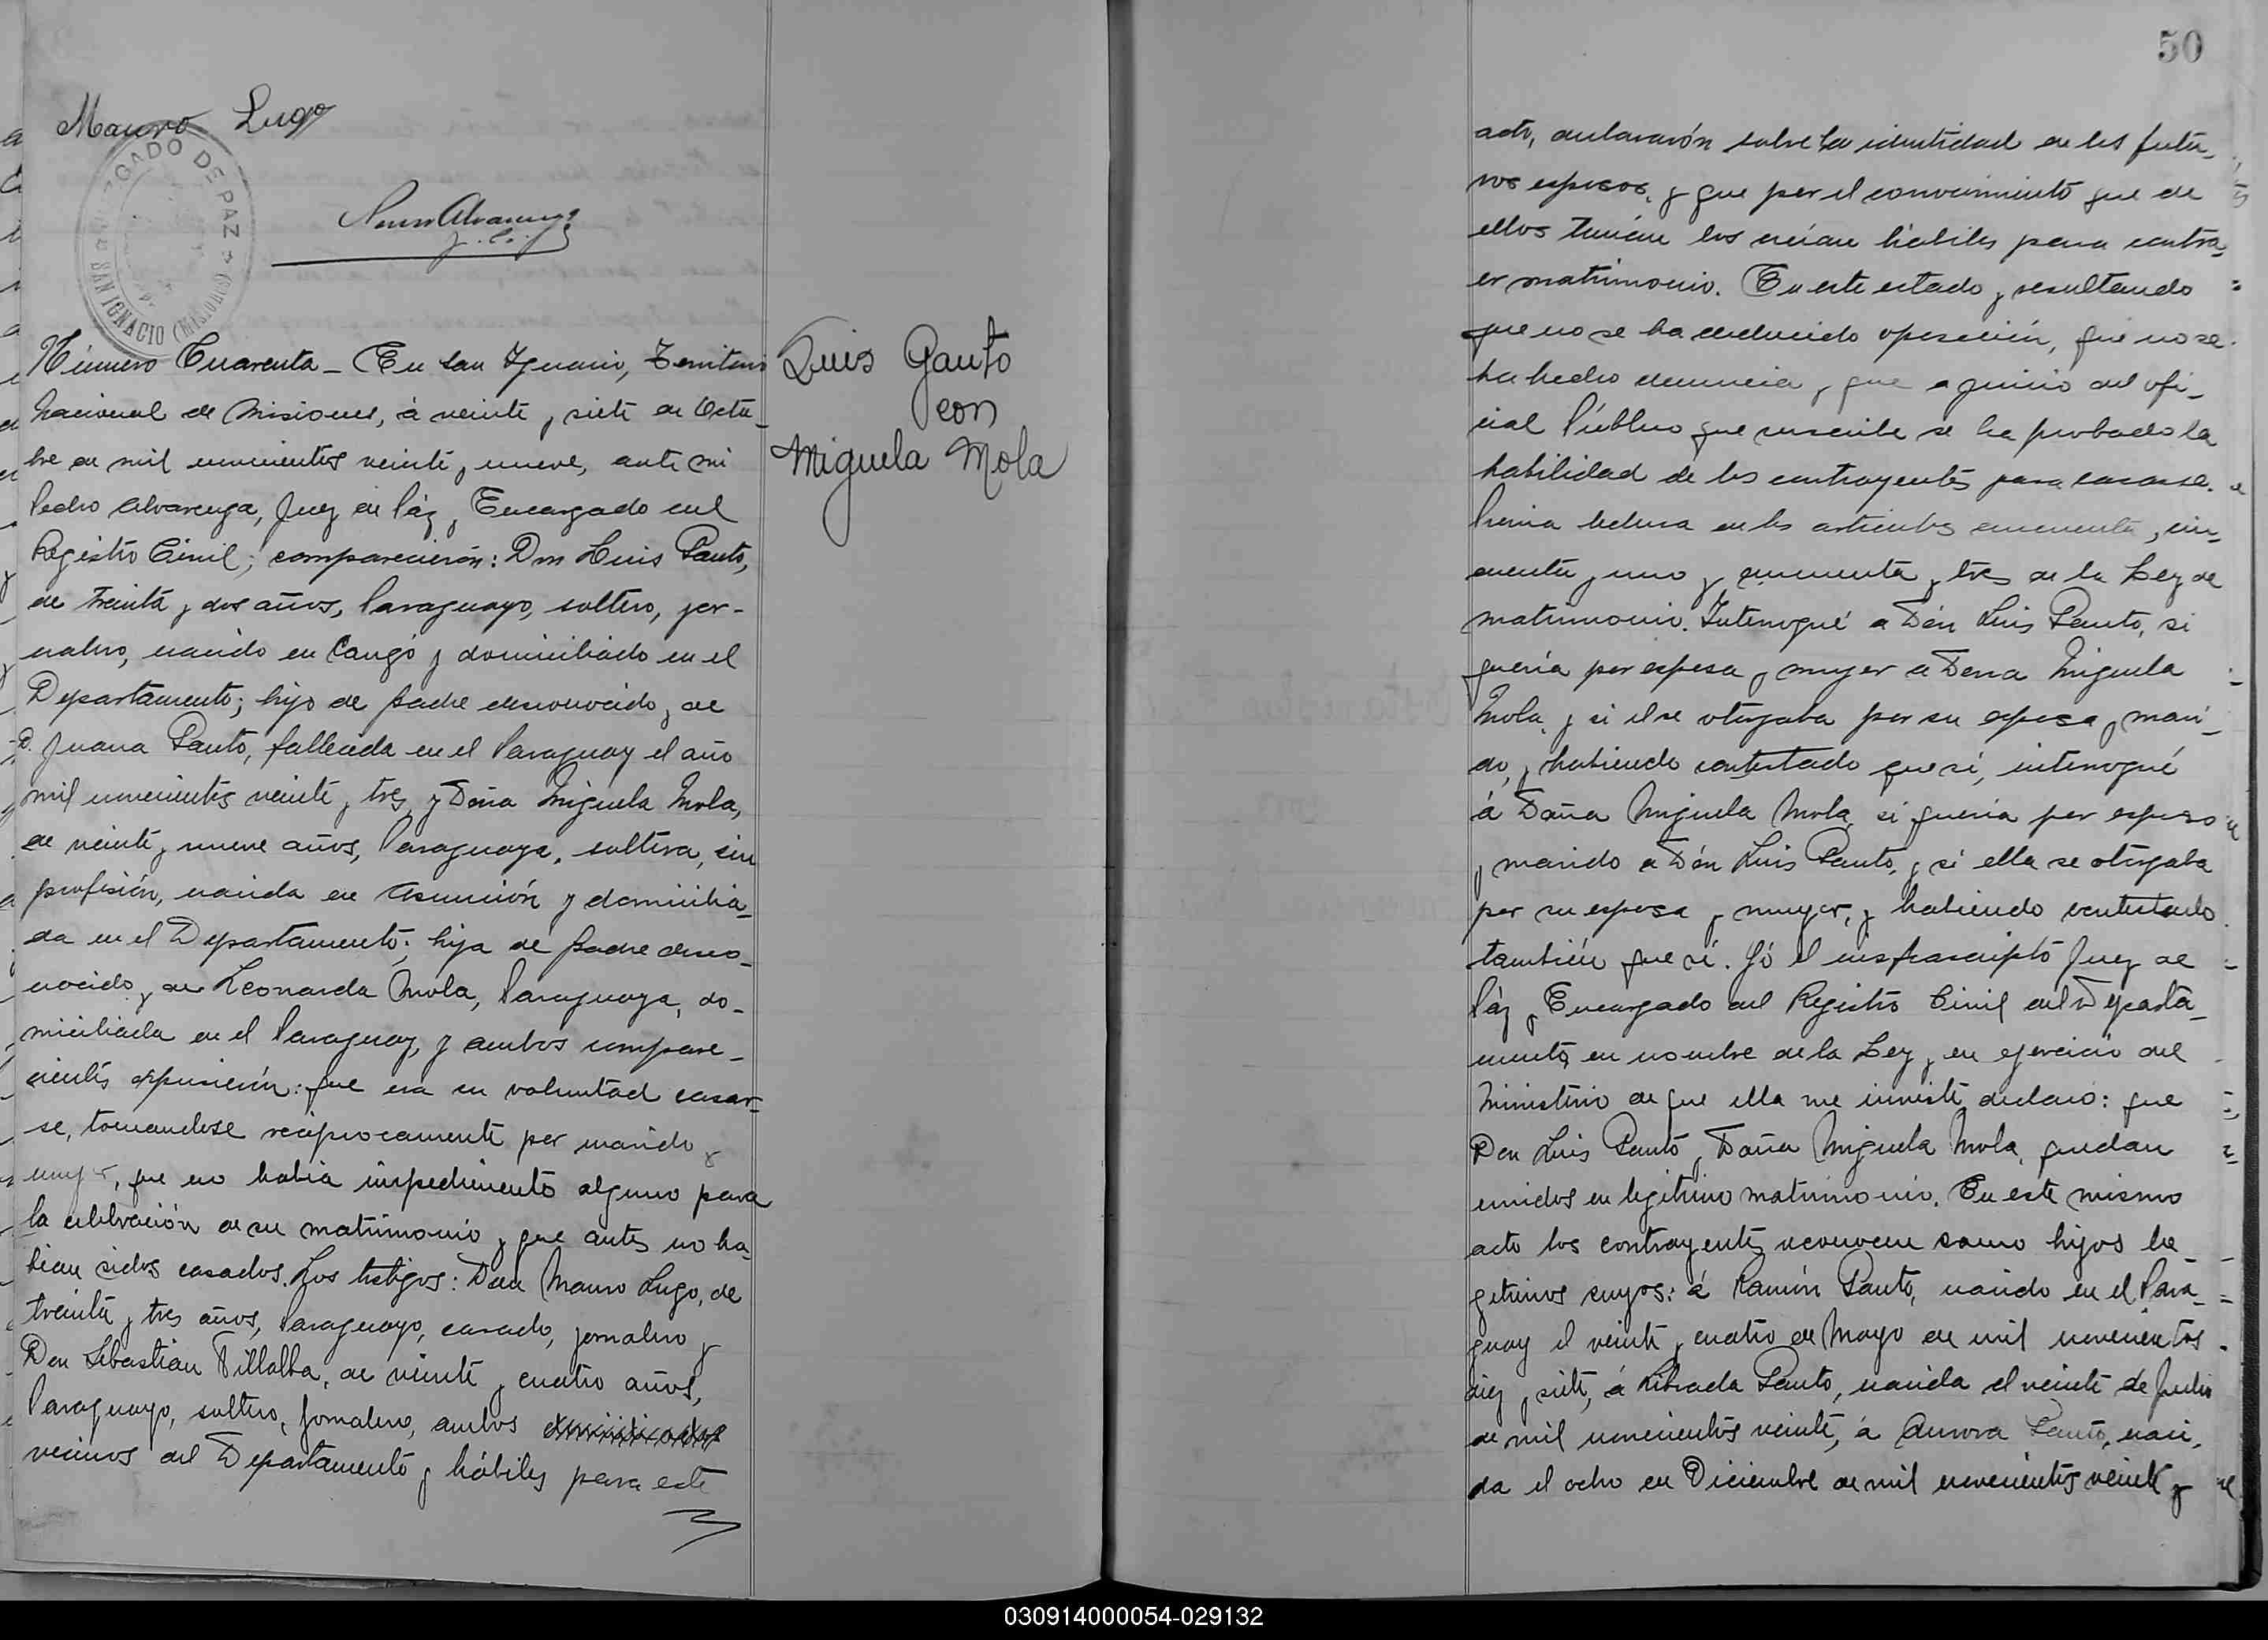 50
Mauro Lugo
JUZGADO DE PAZ
SAN IGNACIO (MISIONES)
Pedro Alvarenga
J. P.
Número Cuarenta - En San Ignacio, Territorio
Nacional de Misiones, á veinte y siete de Octu-
bre de mil novecientos veinte y nueve, ante mi
Pedro Alvarenga, Juez de Páz y Encargado del
Registro Civil; comparecierón: Don Luis Gauto,
de treinta y dos años, Paraguayo, soltero, jor-
nalero, nacido en Cangó y domiciliado en el
Departamento; hijo de padre desconocido y de
D. Juana Gauto, fallecida en el Paraguay el año
mil novecientos veinte y tres y Doña Miguela Mola,
de veinte y nueve años, Paraguaya, soltera, sin
profesión, nacida en Asunción y domicilia-
da en el Departamento; hija de padre desco-
nocido y de Leonarda Mola, Paraguaya, do-
miciliada en el Paraguay, y ambos compare-
cientes expusierón: que era su voluntad casar-
se, tomandose reciprocamente por marido y
mujer, que no habia impedimento alguno para
la celebración de su matrimonio y que antes no ha-
bian sidos casados. Los testigos: Don Mauro Lugo, de
treinta y tres años, Paraguayo, casado, jornalero y
Don Sebastian Villalba, de veinte y cuatro años,
Paraguayo, soltero, jornalero, ambos domiciliados
vecinos del Departamento y hábiles para este
Luis Gauto
con
Miguela Mola
acto, declararón sobre la identidad de los futu-
ros esposos, y que por el conocimiento que de
ellos tenían los creian hábiles para contra-
er matrimonio. En este estado y resultando
que no se ha deducido oposición, que no se
ha hecho denuncia y que a juicio del ofi-
cial Público que suscribe se ha probado la
habilidad de los contrayentes para casarse.
Previa lectura de los articulos cincuenta, cin-
cuenta y uno y cincuenta y tres de la Ley de
matrimonio. Interrogué a Dón Luis Gauto, si
queria por esposa y mujer a Dona Miguela
Mola, y si el se otorgaba por su esposo y mari-
do, y habiendo contestado que sí, interrogué
á Doña Miguela Mola, si queria por esposo
y marido a Dón Luis Gauto, y si ella se otorgaba
por su esposa y mujer, y habiendo contestado
también que sí. Yó el insfrascripto Juez de
Páz y Encargado del Registro Civil del Departa-
mento, en nombre de la Ley y en ejercicio del
Ministerio de que ella me inviste declaro: que
Don Luis Gauto y Doña Miguela Mola, quedan
unidos en legitimo matrimonio. En este mismo
acto los contrayentes reconocen como hijos le-
getimos suyos: á Ramón Gauto, nacido en el Para-
guay el veinte y cuatro de Mayo de mil novecientos
diez y siete, á Librada Gauto, nacida el veinte de Julio
de mil novecientos veinte, á Aurora Gauto, naci-
da el ocho de Diciembre de mil novecientos veinte y
030914000054-029132